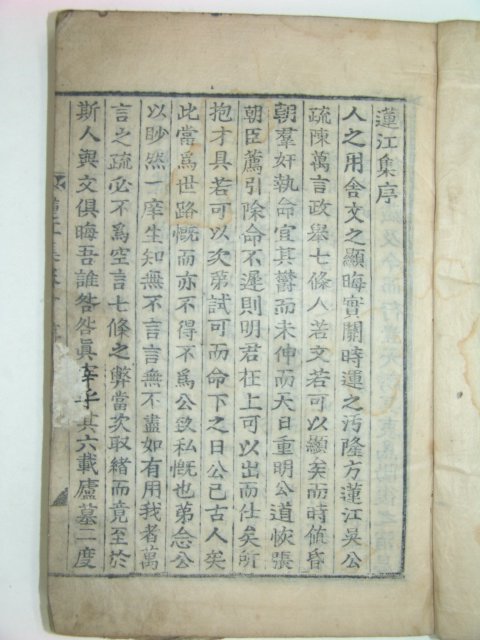 蓮江集序
人之用舍文之顯晦實關時運之汚隆方蓮江吳公
疏陳萬言政擧七條人若文若可以顯矣而時値昏
朝羣奸執命宜其鬱而未伸而天日重明公道恢張
朝臣薦引除命不遲則明君在上可以出而仕矣所
抱才具若可以次第試可而命下之日公已古人矣
此當爲世路慨而亦不得不爲公玆私慨也第念公
以眇然一庠生知無不言言無不盡如有用我者萬
言之疏必不爲空言七條之弊當次取緖而竟至於
斯人與文俱晦吾誰咎咎眞宰乎其六載廬墓二度